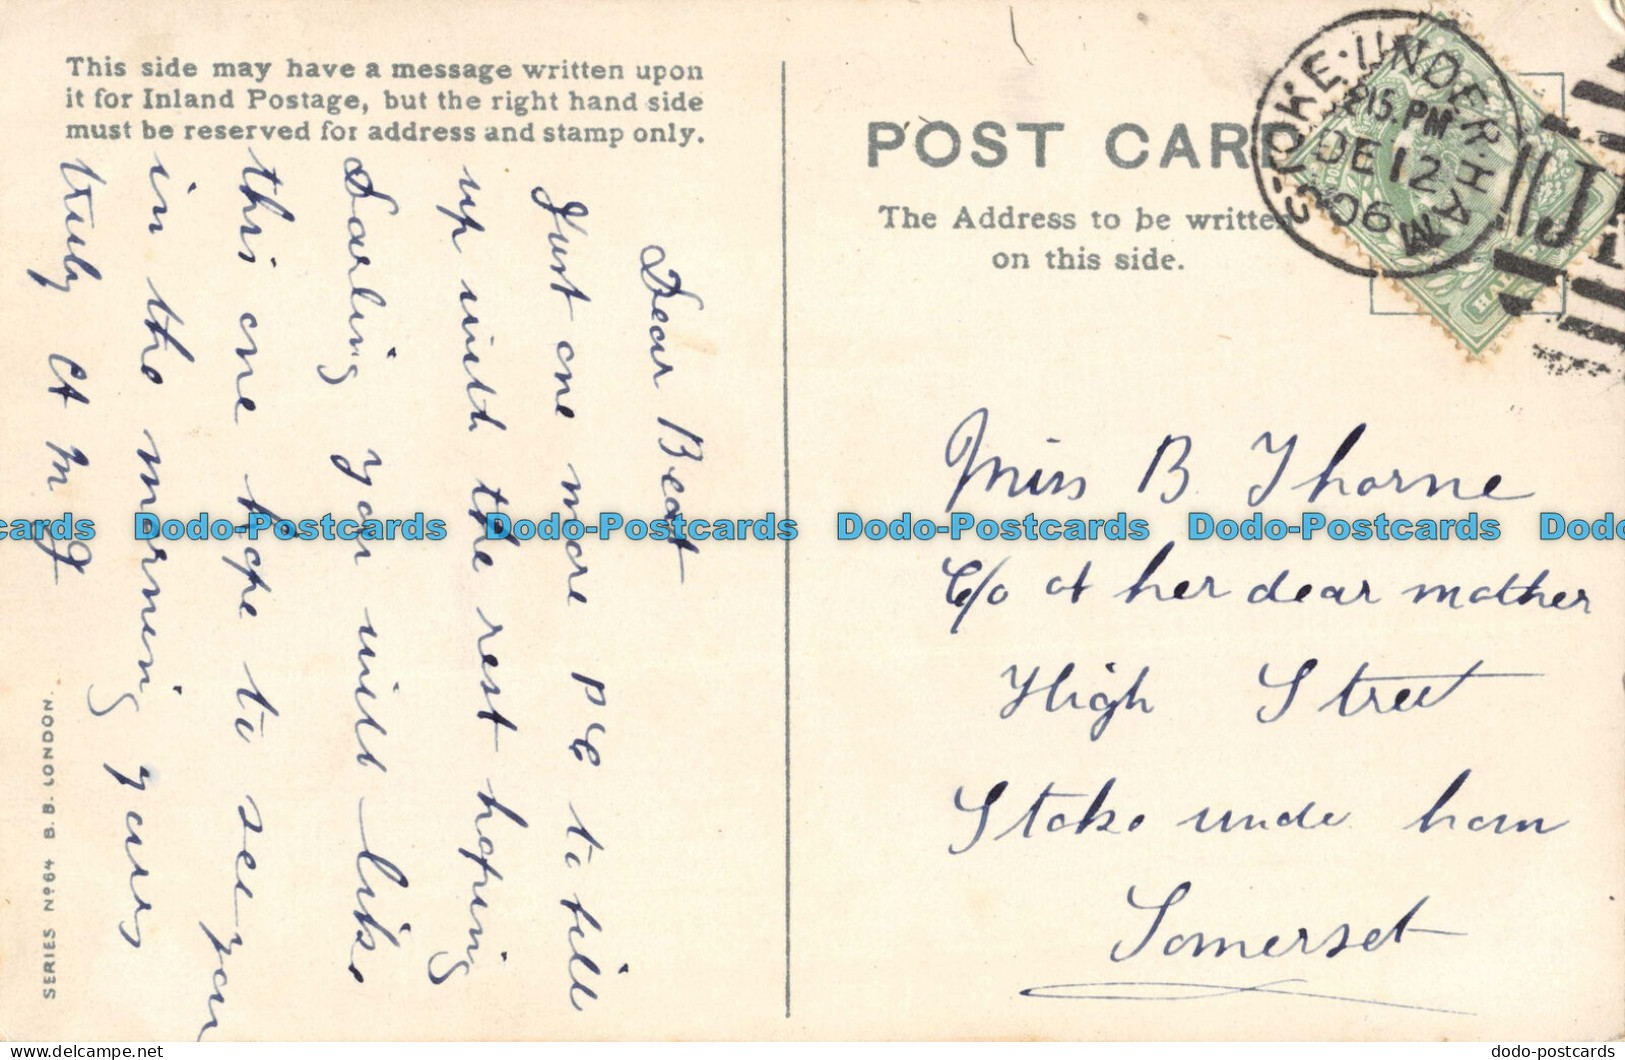 This side may have a message written upon
it for Inland Postage, but the right hand side
must be reserved for address and stamp only.
Dear Beat
Just one more P C to fill
up with the rest hoping
Darling you will like
this one hope to see you
in the morning yours
truly A M G
SERIES Nº 64 B.B. LONDON.
POST CARD
The Address to be written
on this side.
STOKE-UNDER-HAM
8 15. PM
DE 12
06
HALF
Miss B Thorne
C/o of her dear mother
High Street
Stoke unde ham
Somerset
cards Dodo-Postcards Dodo-Postcards Dodo-Postcards Dodo-Postcards Dodo
delcampe.net
dodo-postcards